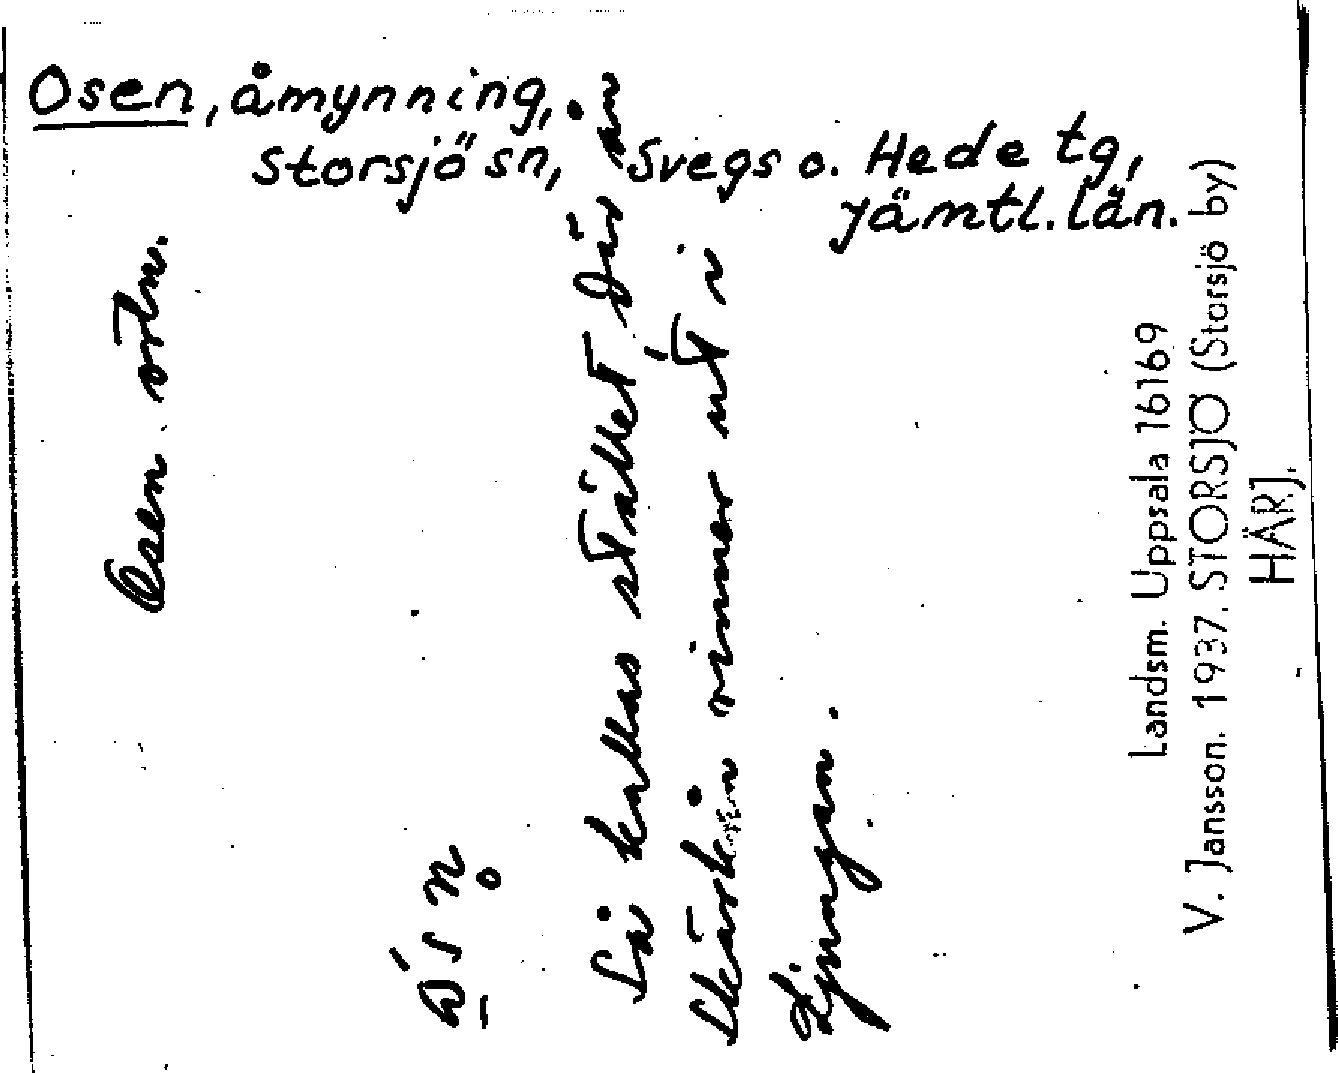 Osen, åmynning,
Storsjö sn, Svegs o. Hede tg,
Jämtl. län.
Osen
Så kallas stället där ån
Skärkån rinner ut i
Ljungan.
Landsm. Uppsala 16169
V. Jansson. 1937. STORSJÖ (Storsjö by)
HÄRJ.